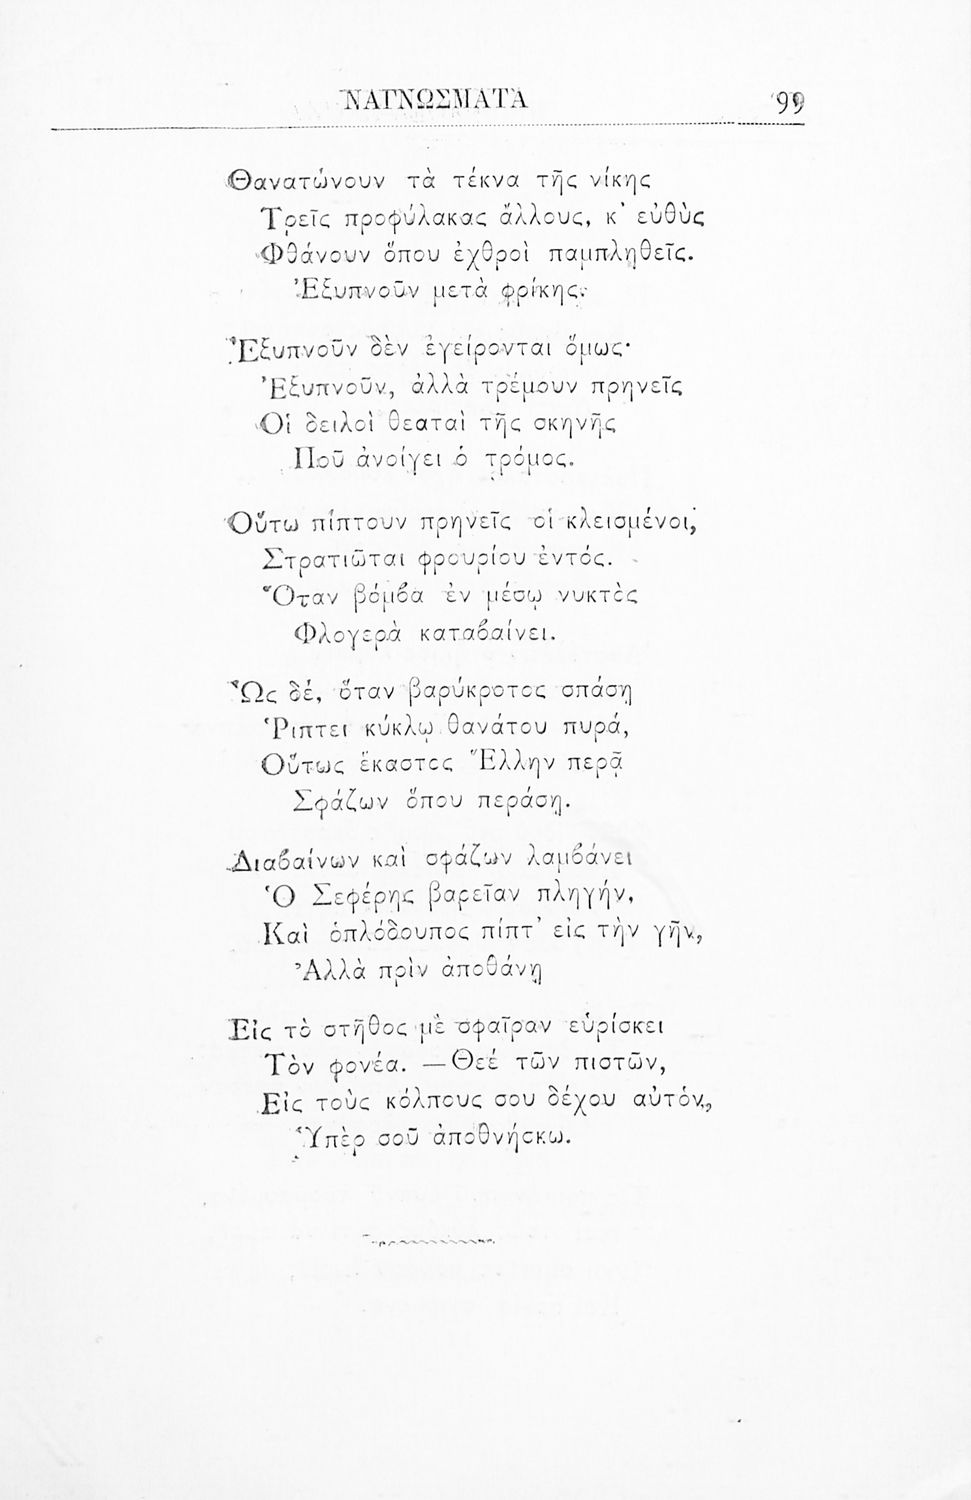 ΝΑΓΝΩΣΜΑΤΑ 99
Θανατώνουν τὰ τέκνα τῆς νίκης
Τρεῖς προφύλακας ἄλλους, κ᾽ εὐθὺς
Φθάνουν ὅπου ἐχθροὶ παμπληθεῖς.
Ἐξυπνοῦν μετὰ φρίκης·
Ἐξυπνοῦν δὲν ἐγείρονται ὅμως·
Ἐξυπνοῦν, ἀλλὰ τρέμουν πρηνεῖς
Οἱ δειλοὶ θεαταὶ τῆς σκηνῆς
Ποῦ ἀνοίγει ὁ τρόμος.
Οὕτω πίπτουν πρηνεῖς οἱ κλεισμένοι,
Στρατιῶται φρουρίου ἐντός.
Ὅταν βόμβα ἐν μέσῳ νυκτὸς
Φλογερὰ καταβαίνει.
Ὡς δέ, ὅταν βαρύκροτος σπάσῃ
Ῥίπτει κύκλῳ θανάτου πυρά,
Οὕτως ἕκαστος Ἕλλην περᾷ
Σφάζων ὅπου περάσῃ.
Διαβαίνων καὶ σφάζων λαμβάνει
Ὁ Σεφέρης βαρεῖαν πληγήν,
Καὶ ὁπλόδουπος πίπτ᾽ εἰς τὴν γῆν,
Ἀλλὰ πρὶν ἀποθάνῃ
Εἰς τὸ στῆθος μὲ σφαῖραν εὑρίσκει
Τὸν φονέα. — Θεέ τῶν πιστῶν,
Εἰς τοὺς κόλπους σου δέχου αὐτόν,
Ὑπὲρ σοῦ ἀποθνήσκω.